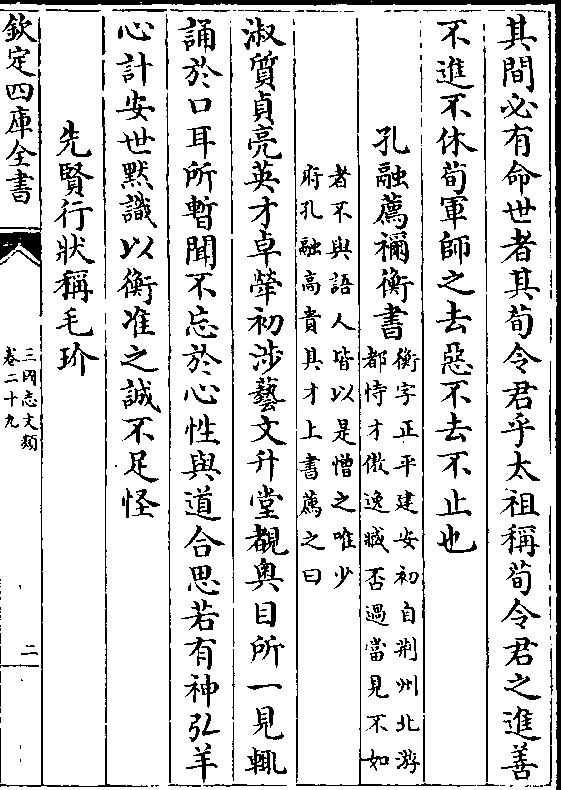 其間必有命世者其荀令君乎太祖稱荀令君之進善
不進不休荀軍師之去惡不去不止也
孔融薦禰衡書
衡字正平建安初自荆州北游
都恃才傲逸臧否過當見不如
者不與語人皆以是憎之唯少
府孔融高貴其才上書薦之曰
淑質貞亮英才卓犖初涉藝文升堂覩奥目所一見輒
誦於口耳所暫聞不忘於心性與道合思若有神弘羊
心計安世黙識以衡准之誠不足怪
先賢行狀稱毛玠
欽定四庫全書
三國志文類
卷二十九
二